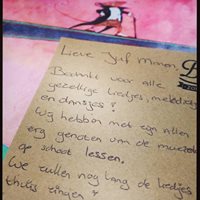 Lieve Juf Manon,
Bedankt voor alle
gezellige liedjes, melodietjes
en dansjes!
Wij hebben met z'n allen
erg genoten om de muziek
op schoot lessen.
We zullen nog lang de liedjes
thuis zingen!